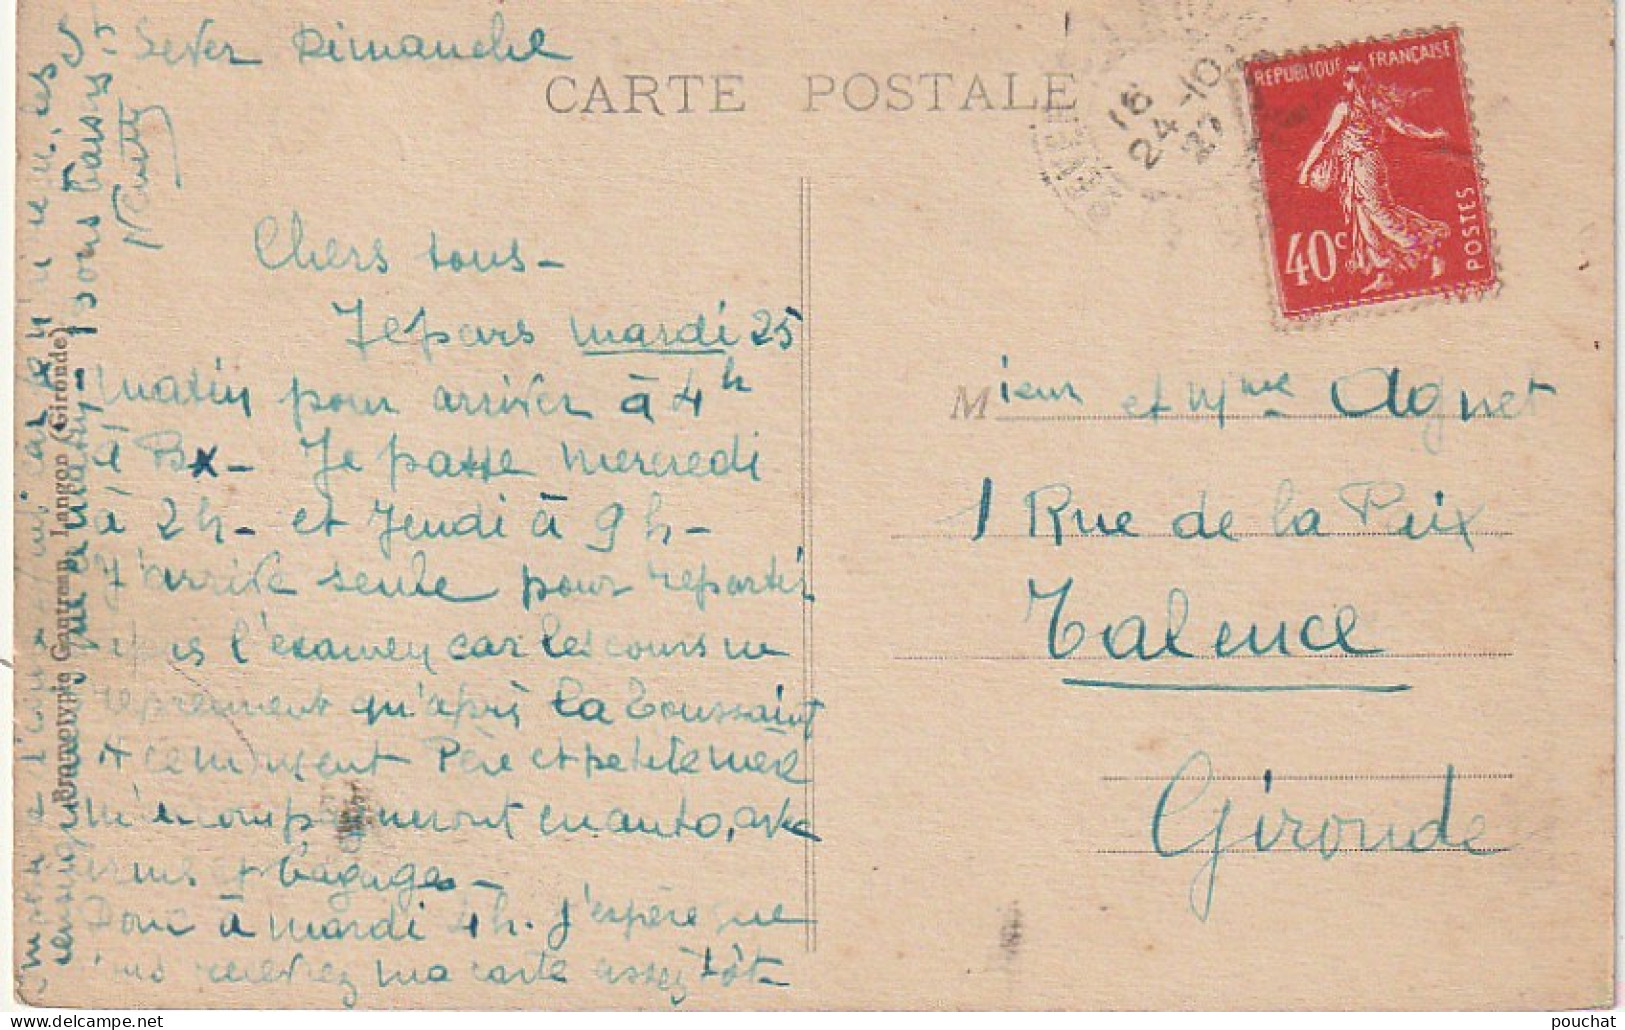 St Sever Dimanche
CARTE POSTALE
16
24-10
27
REPUBLIQUE FRANÇAISE
40c
POSTES
Chers tous -
Je pars mardi 25
matin pour arriver à 4h
à Bx - Je passe mercredi
à 2h - et Jeudi à 9h -
J'arrive seule pour repartir
l'examen car les cours ne
reprennent qu'après la Toussaint
et comment Père et petite mère
m'accompagneront en auto, avec
armes et bagages -
Donc à mardi 4h. J'espère que
vous recevrez ma carte assez tôt -
sons baisers
Bromotypie Gautreau, Langon (Gironde)
Mieur et Mme Agnet
1 Rue de la Paix
Talence
Gironde
pouchat